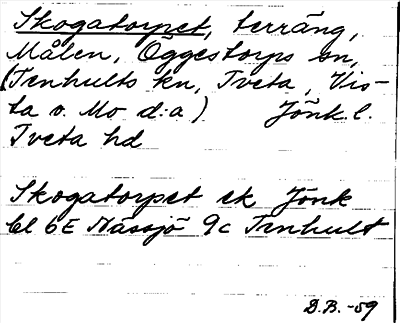 Skogatorpet, terräng,
Målen, Öggestorps sn,
(Tenhults kn, Tveta, Vis-
ta o. Mo d:a) Jönk. l.
Tveta hd
Skogatorpet ek Jönk
bl 6E Nässjö 9c Tenhult
D.B. -59